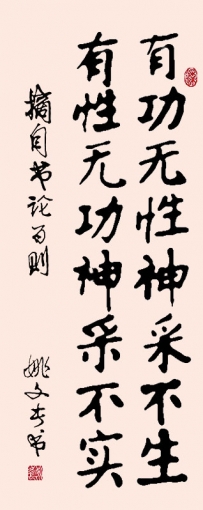 有功无性神采不生
有性无功神采不实
摘自书论百则
姚文奎书